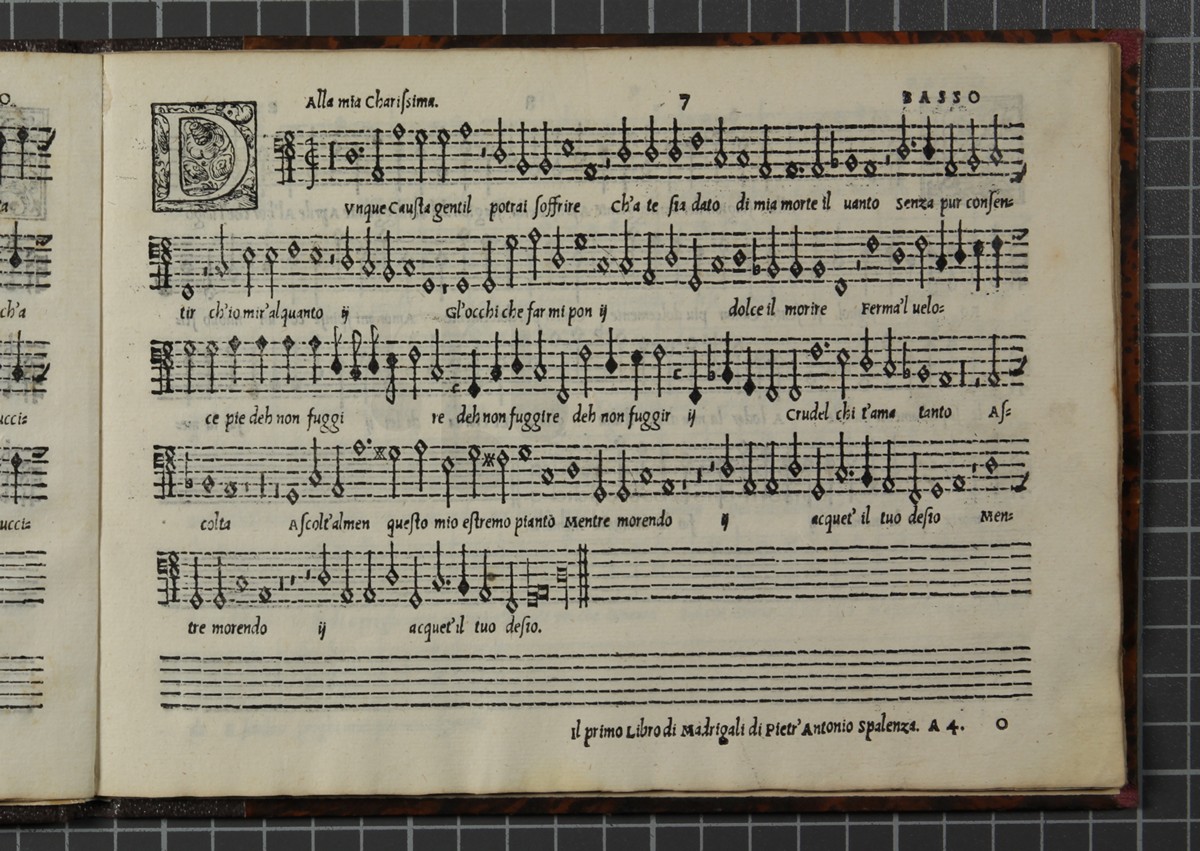 Alla mia Chariſsima. 7 BASSO
DVnque Cauſta gentil potrai ſoffrire Ch'a te ſia dato di mia morte il uanto Senza pur conſen=
tir ch'io mir'alquanto ij Gl'occhi che far mi pon ij dolce il morire Ferma'l uelo=
ce pie deh non fuggi re deh non fuggire deh non fuggir ij Crudel chi t'ama tanto Aſ=
colta Aſcolt'almen queſto mio eſtremo pianto Mentre morendo ij acquet' il tuo deſio Men=
tre morendo ij acquet'il tuo deſio.
Il primo Libro di Madrigali di Pietr'Antonio Spalenza. A 4. O
O
ta
ch'a
ucci=
ucci=